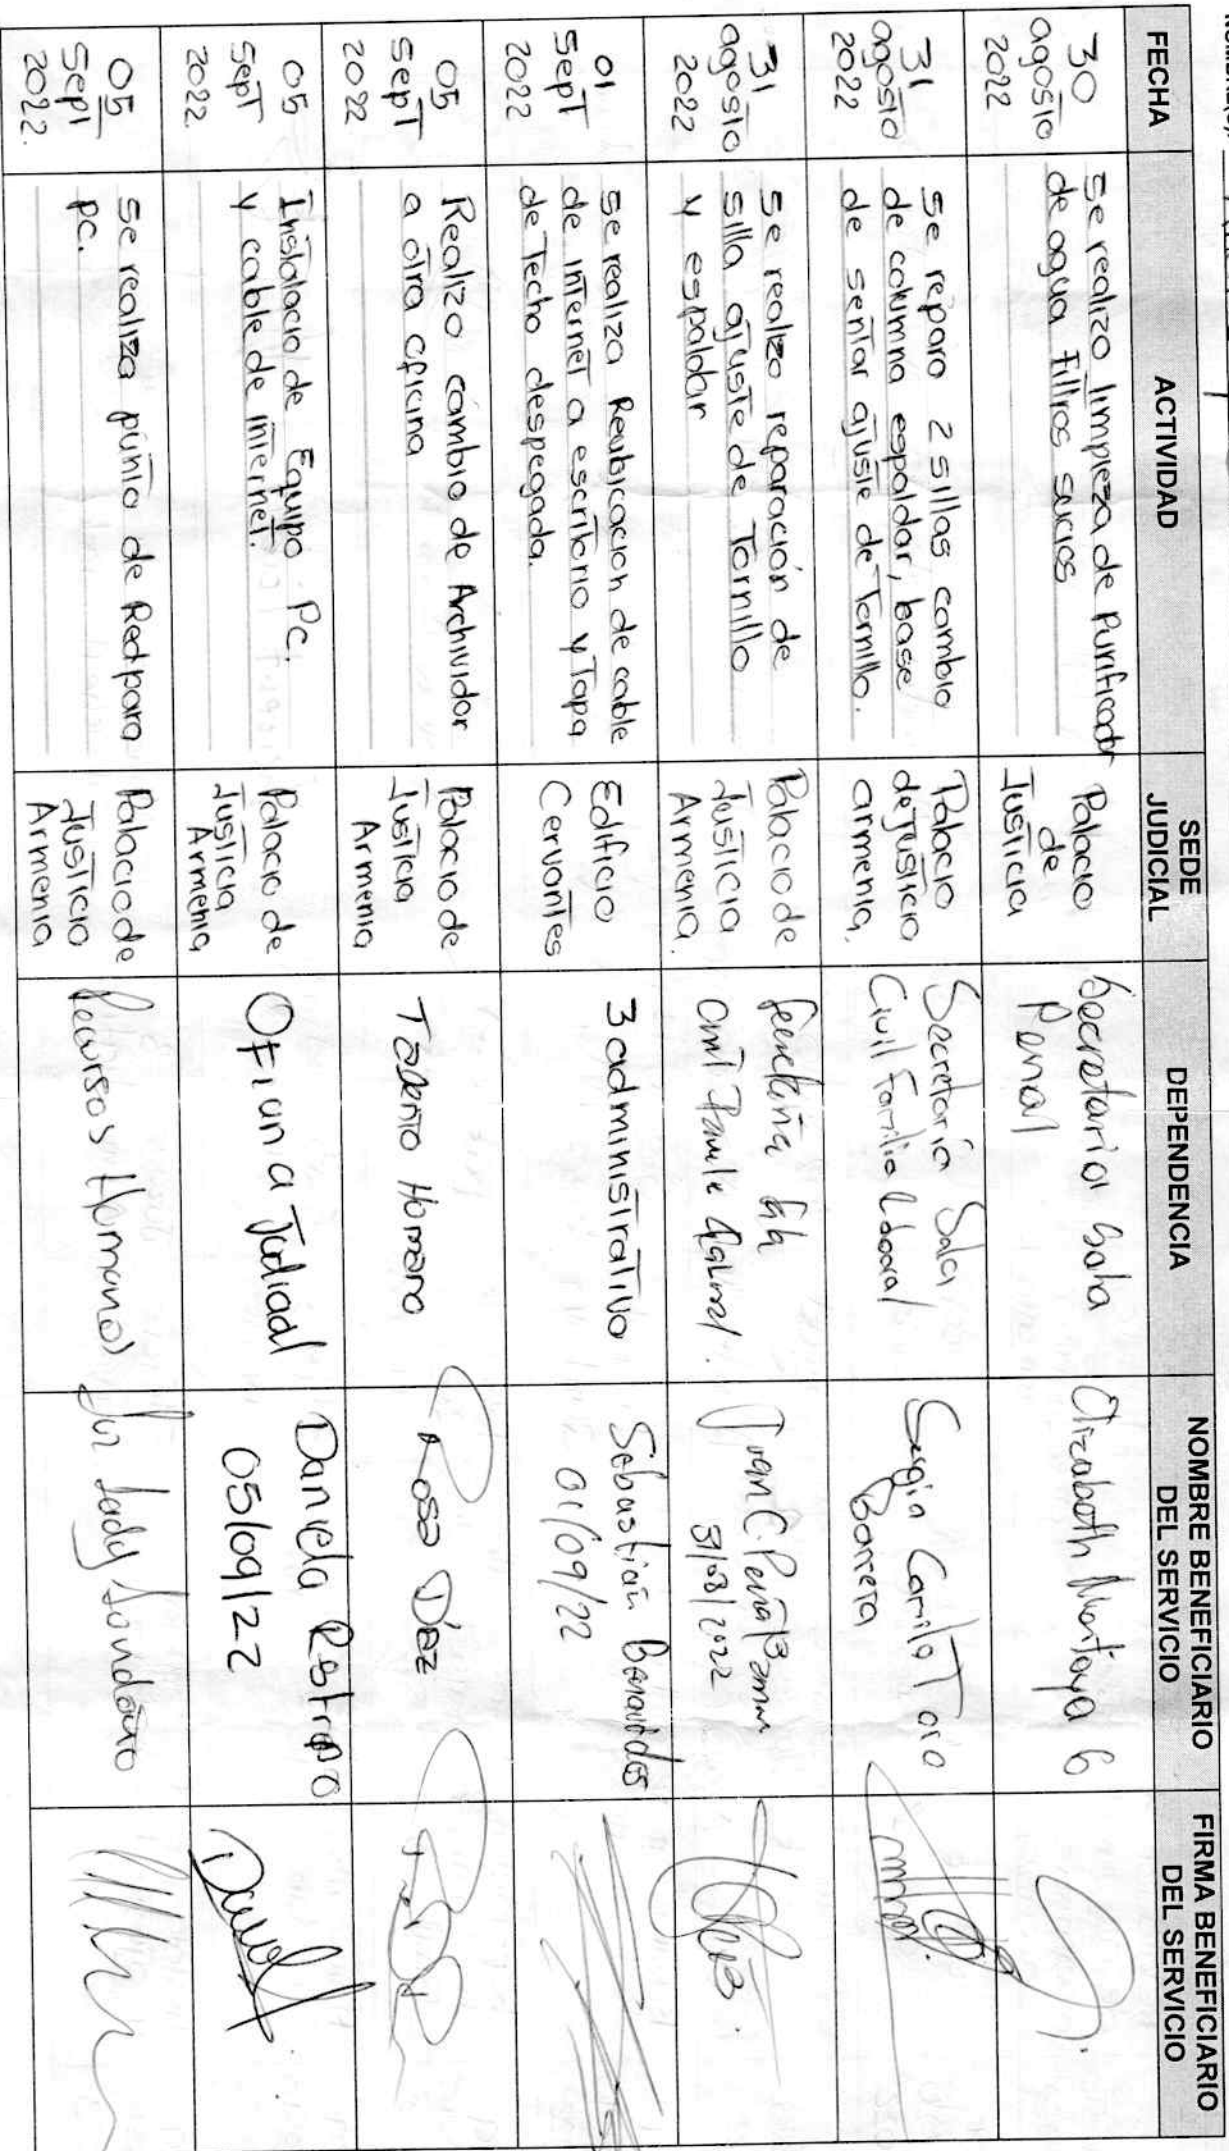 FECHA
ACTIVIDAD
SEDE
JUDICIAL
DEPENDENCIA
NOMBRE BENEFICIARIO
DEL SERVICIO
FIRMA BENEFICIARIO
DEL SERVICIO
30
agosto
2022
se realizo limpieza de Purificador
de agua Filtros sucios
Palacio
de
Justicia
Secretaria Sala
Penal
Elizabeth Montoya G
31
agosto
2022
Se reparo 2 sillas cambio
de columna espaldar, base
de sentar ajuste de Tornillo.
Palacio
de Justicia
armenia.
Secretaria Sala
Civil Familia Laboral
Sergio Camilo Toro
Barrera
31
agosto
2022
Se realizo reparación de
silla ajuste de Tornillo
y espaldar
Palacio de
Justicia
Armenia.
Juan C. Peña
31/08/2022
01
Sept
2022
Se realiza Reubicacion de cable
de internet a escritorio y Tapa
de Techo despegada.
Edificio
Cervantes
3 administrativo
Sebastián Benavides
01/09/22
05
Sept
2022
Realizo cambio de Archivador
a otra oficina
Palacio de
Justicia
Armenia
Talento Humano
Rosa Díaz
05
Sept
2022.
Instalacio de Equipo Pc,
y cable de internet.
Palacio de
Justicia
Armenia
Oficina Judicial
Daniela Restrepo
05/09/22
05
Sept
2022.
Se realiza punto de Red para
pc.
Palacio de
Justicia
Armenia
Recursos Humanos
Luz Lady Londoño